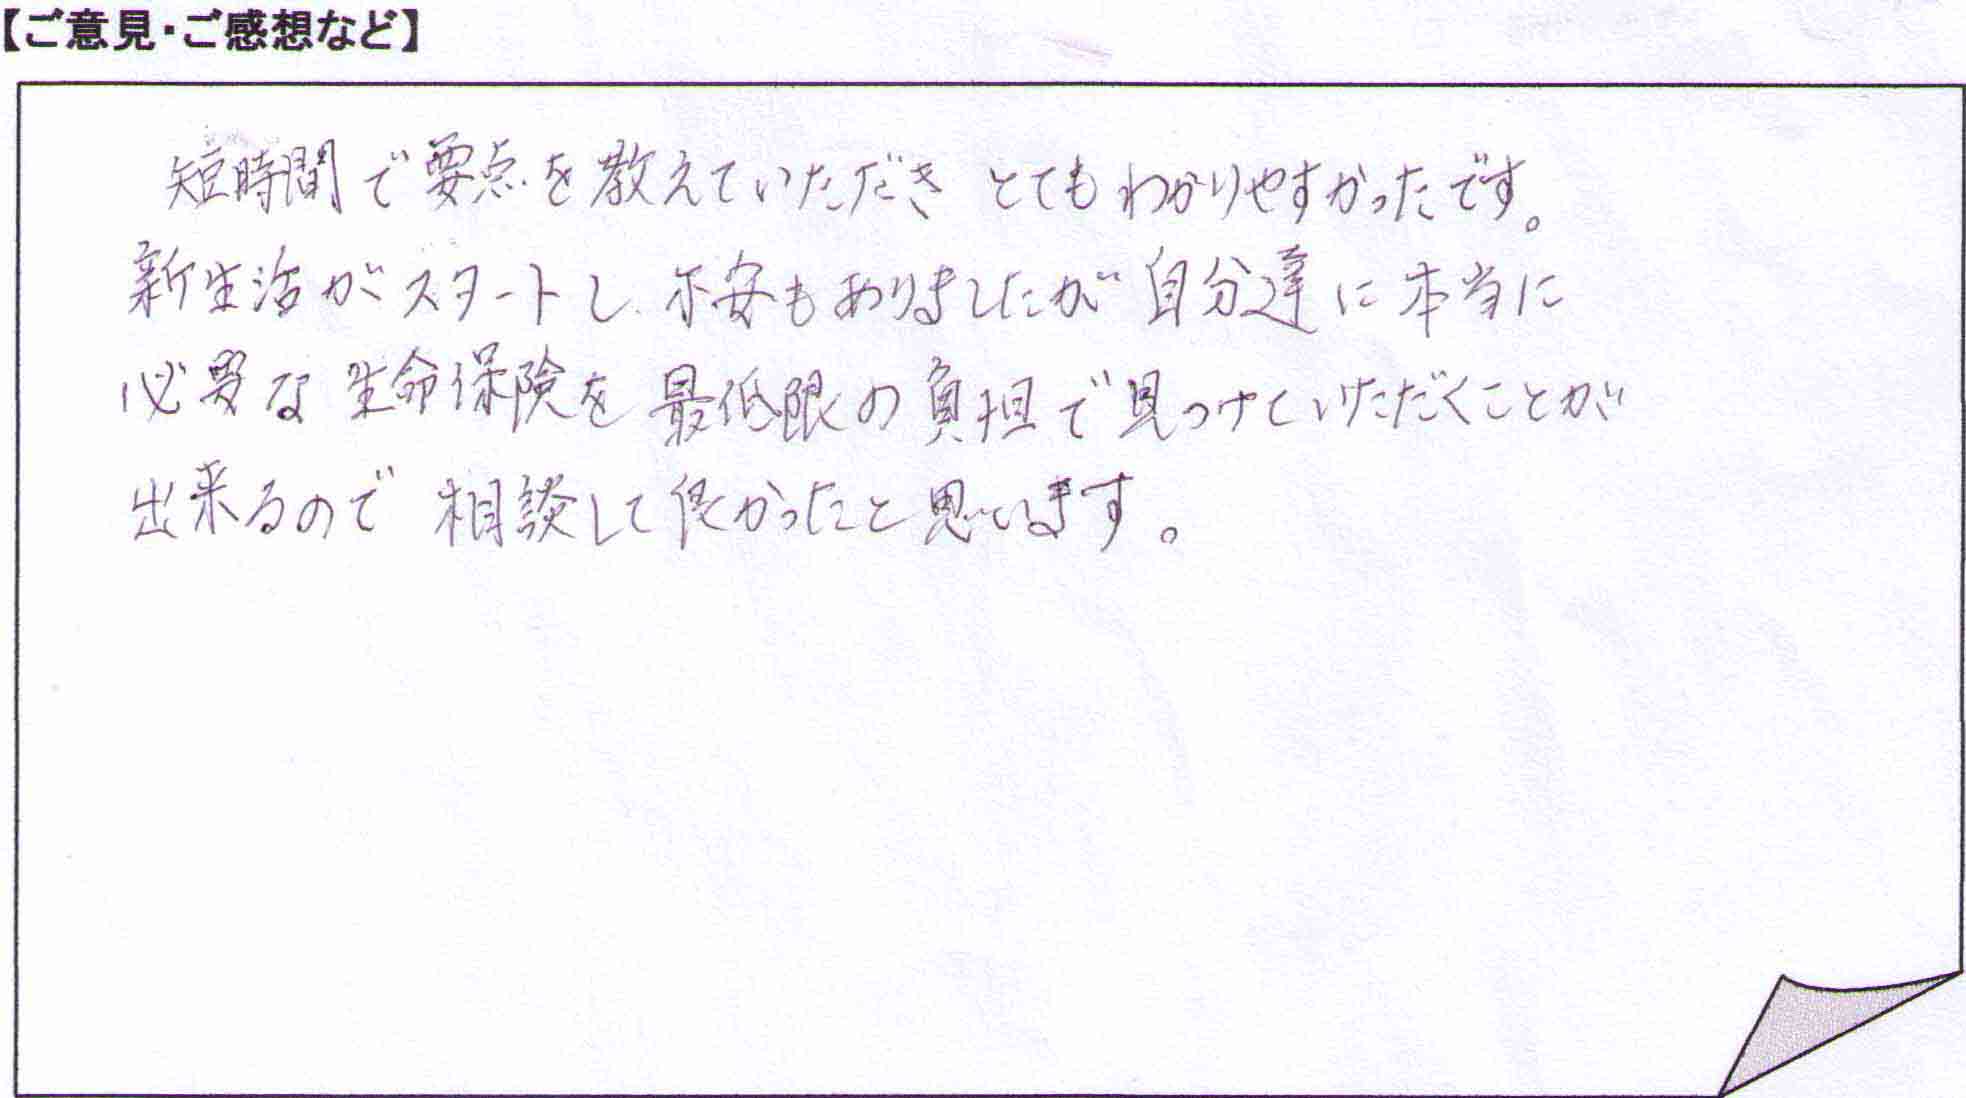 【ご意見・ご感想など】
短時間で要点を教えていただき とてもわかりやすかったです。
新生活がスタートし、不安もありましたが 自分達に本当に
必要な生命保険を最低限の負担で見つけていただくことが
出来るので 相談して良かったと思います。